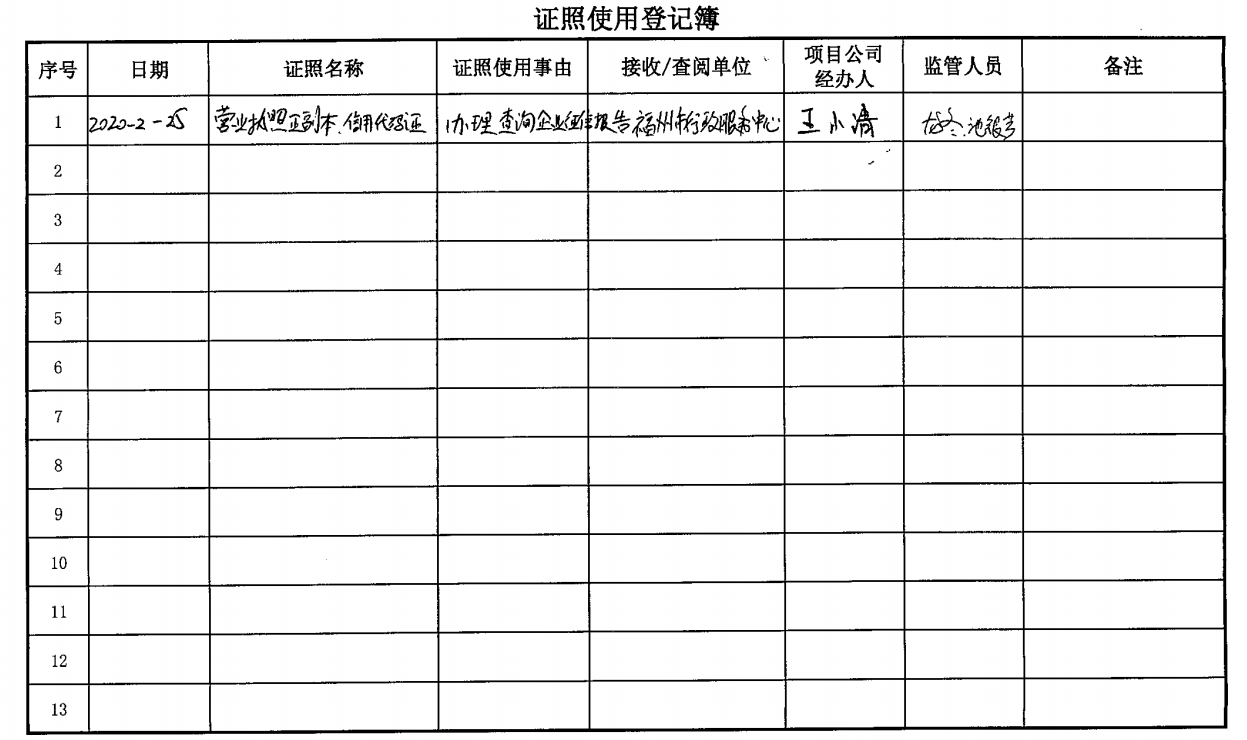 证照使用登记簿
序号 日期 证照名称 证照使用事由 接收/查阅单位 项目公司经办人 监管人员 备注
1 2020-2-25 营业执照正副本、信用代码证 办理查询企业征信报告 福州市行政服务中心 王小清
2
3
4
5
6
7
8
9
10
11
12
13